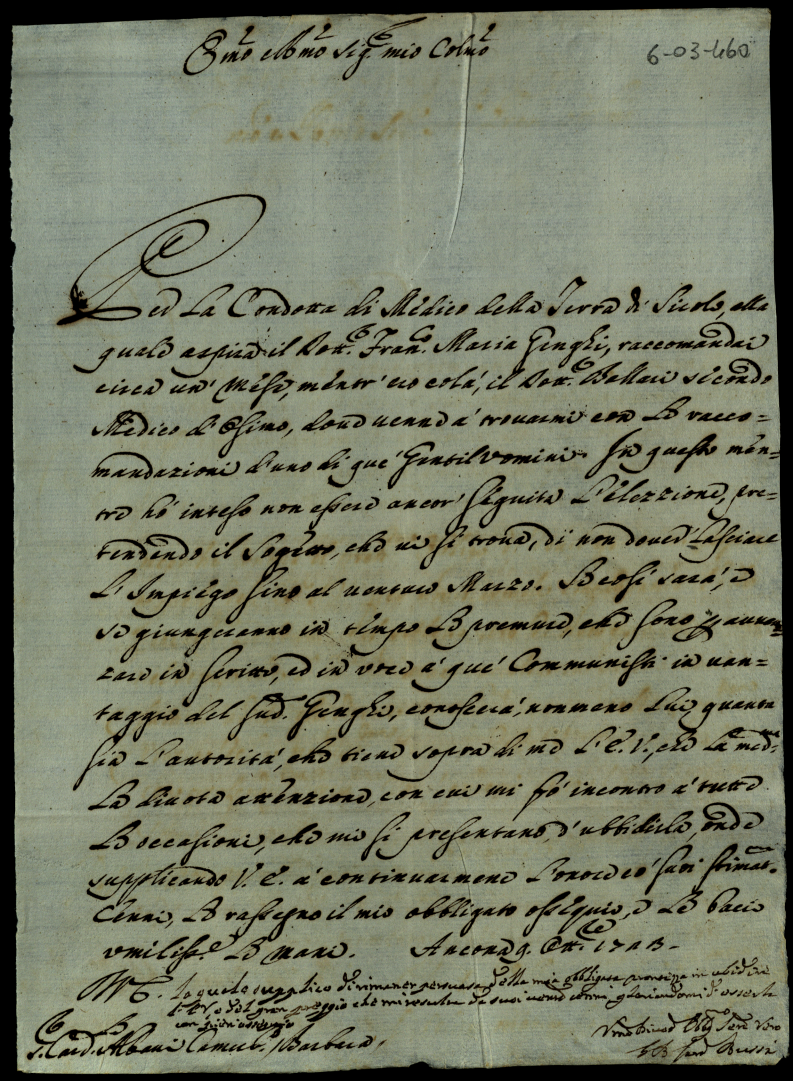 6-03-460
Em̃o e Rm̃o Sig.r mio Colm̃o
Per La Condotta di Médico della Terra di Sirolo, alla
quale aspira il Dott.r Fran.co Maria Genghi, raccomandai
circa un' Mese, mentr' ero colà, il Dott.r Ballari secondo
Médico d' Osimo, doue uenne a' trouarmi con Le racco=
mandazioni d'uno di que' Gentilvomini. In questo men=
tre hò inteso non essere ancor' seguita L'elezzione, pre=
tendendo il Sogetto, che ui si troua, di non douer' Lasciare
L' Impiego sino al uenturo Marzo. Se così sarà, e
se giungeranno in tempo Le premure, che sono p auan=
zare in scritto, ed in voce a' que' Communisti in uan=
taggio del sud.o Genghi, conoscerà, nonmeno Lui quanta
sia L'autorità, che tiene sopra di me L' E. V., che La med.ma
La diuota attenzione, con cui mi fò incontro a' tutte
Le occasioni, che mi si presentano d' ubbidirla, onde
supplicando V. E. a' continuarmene L'onore co' suoi stimat.mi
Cenni, Le rassegno il mio obbligato ossequio, e Le bacio
vmiliss.e Le mani. Ancona 9. Ott.re 1743.
La quale supplico di rimaner persuasa della mia obbligata prontezza in ubidire
l' E. V. e del gran preggio che mi risulta da suoi cenni gloriandomi d' essere
con pien ossequio
S.r Card. Albani Camerl.o / Barbara.
Vmo Diuo Obl.mo Seru Vero